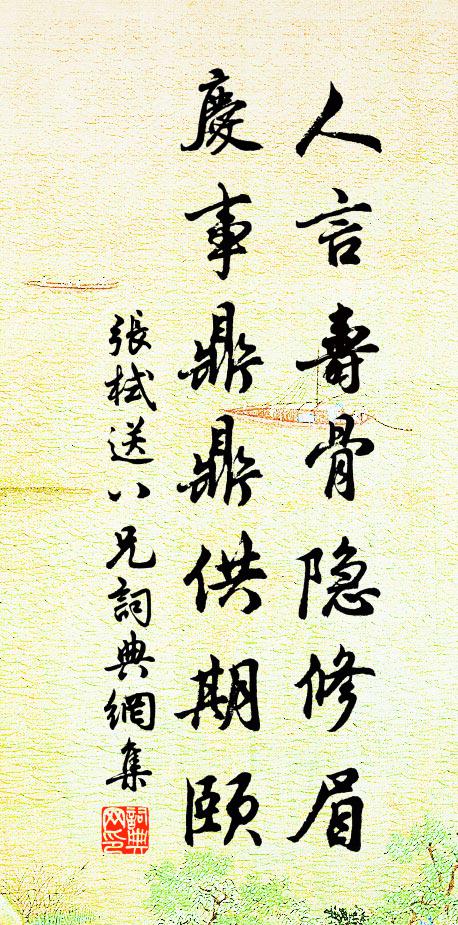 人言壽骨隐修眉
慶事鼎鼎供期頤
張栻送八兄詞典網集
詞典网印